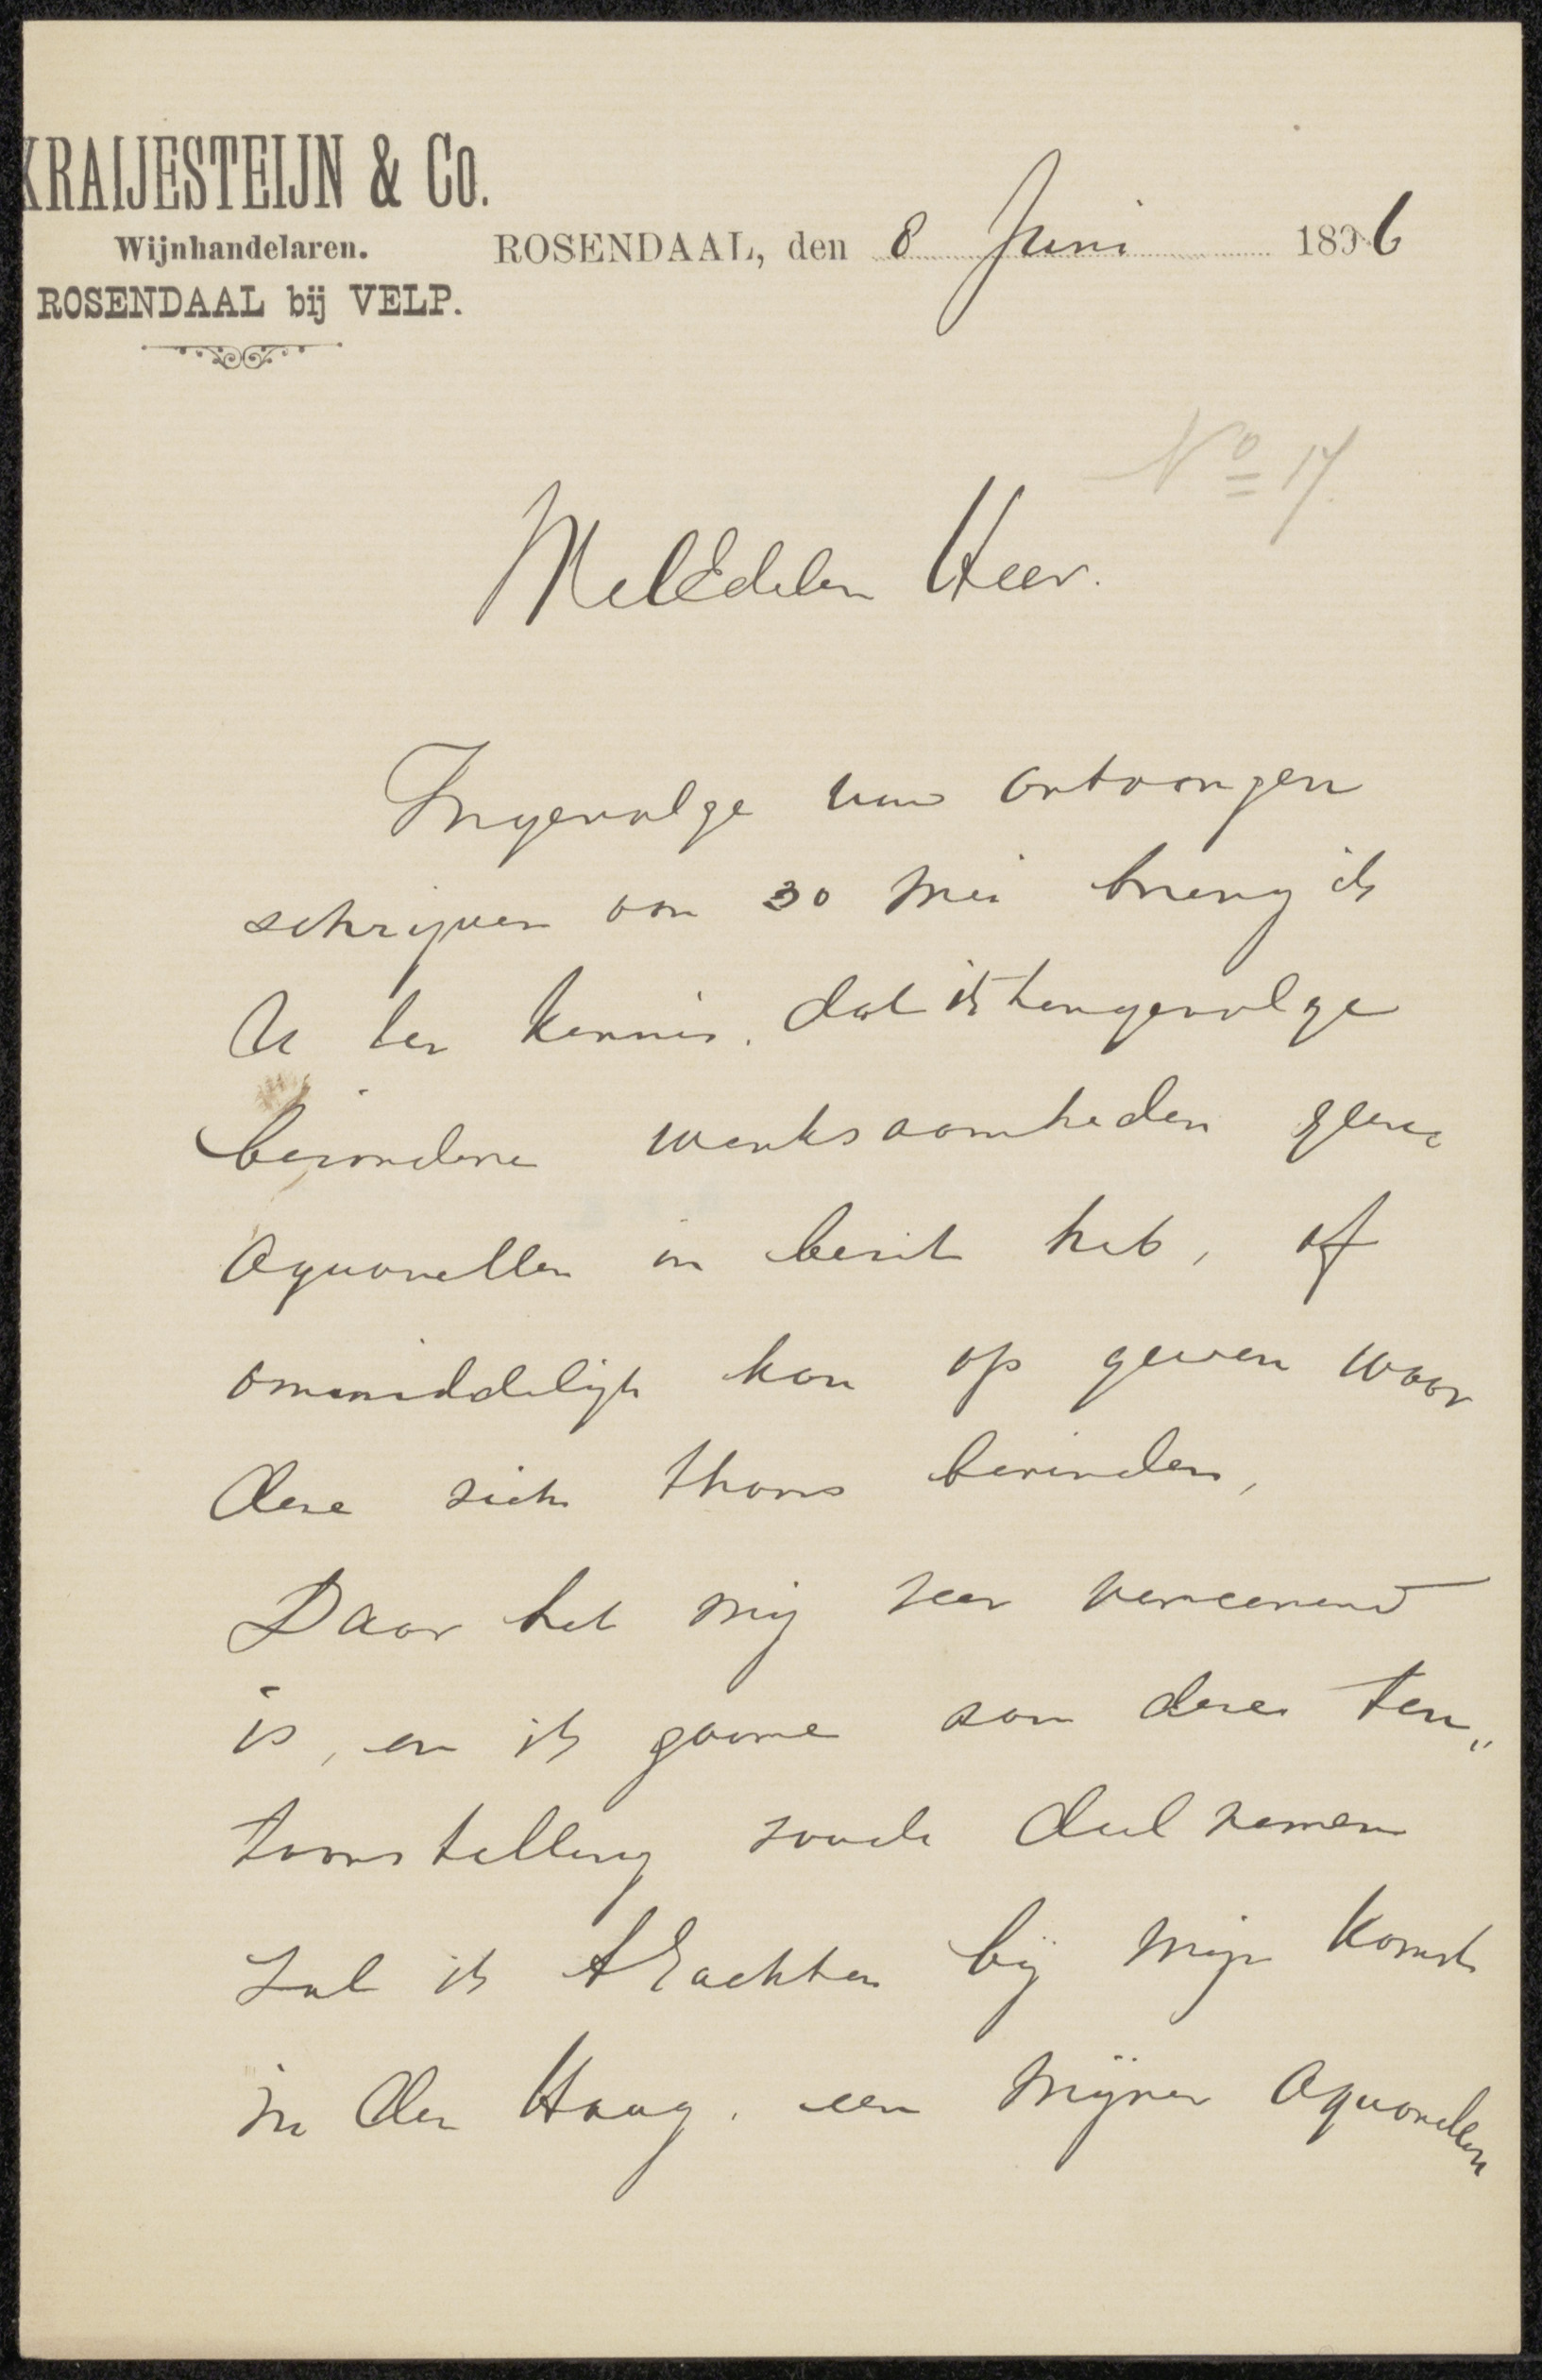 KRAIJESTEIJN & Co.
Wijnhandelaren.
ROSENDAAL bij VELP.
ROSENDAAL, den 8 Juni 1896
No 17
WelEdelen Heer.
Ingevolge uw ontvangen
schrijven van 30 Mei breng ik
U ter kennis, dat ik tengevolge
bezondere werksaamheden geene
Aquarellen in bezit heb, of
ommiddelijk kan op geven waar
deze zich thans bevinden,
Daar het mij zeer vereerend
is, en ik gaarne aan deze ten„
toonstelling zoude deel nemen
zal ik trachten bij mijn komst
in den Haag, een mijner Aquarellen